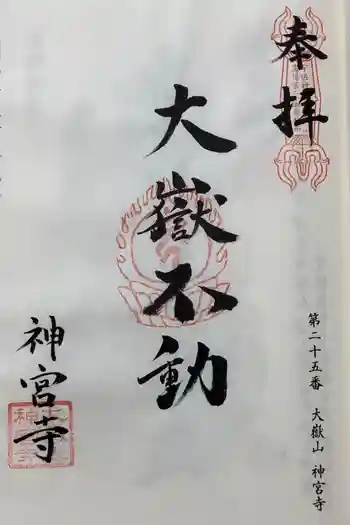 奉拝
第二十五番 大嶽山 神宮寺
大嶽不動
神宮寺